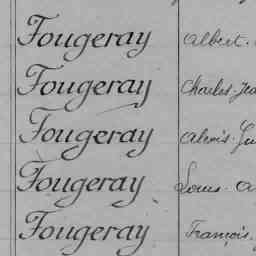 Fougeray Albert.
Fougeray Charles-Jea
Fougeray Alexis.
Fougeray Louis. A
Fougeray François.